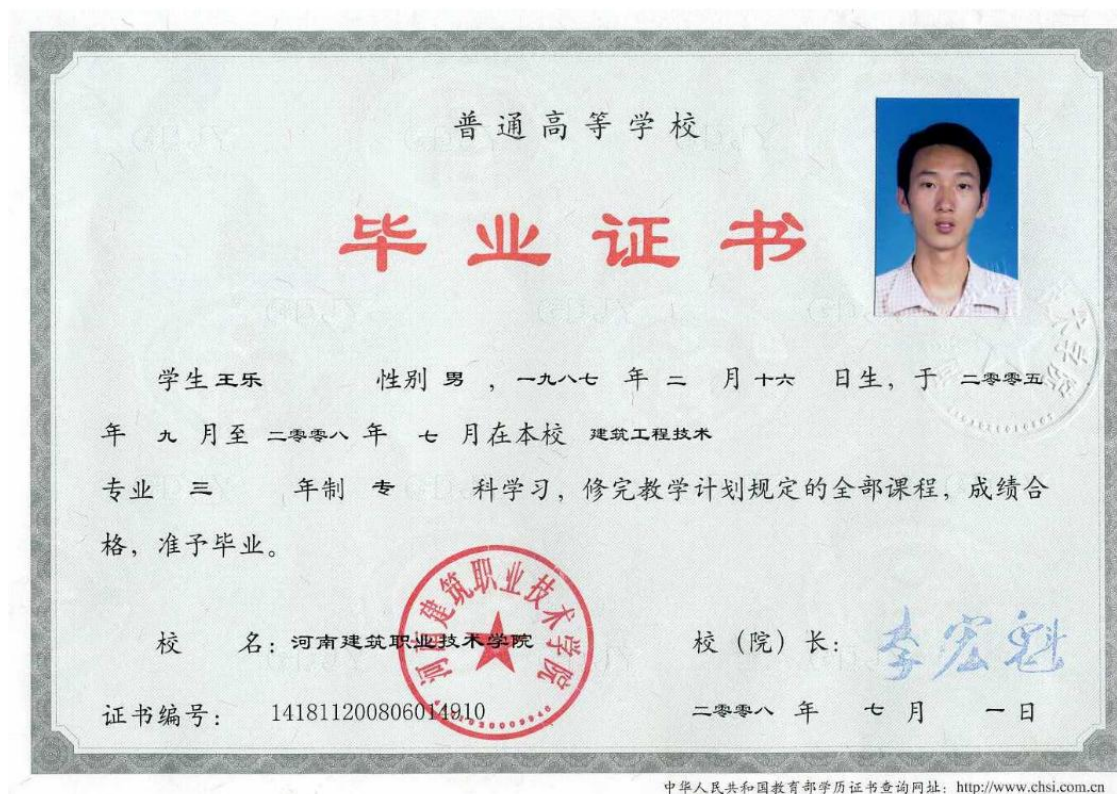 普通高等学校
毕业证书
学生 王乐 性别 男 ，一九八七 年 二 月 十六 日生，于 二零零五
年 九 月至 二零零八 年 七 月在本校 建筑工程技术
专业 三 年制 专 科学习，修完教学计划规定的全部课程，成绩合
格，准予毕业。
河南建筑职业技术学院
校 名：河南建筑职业技术学院 校（院）长：李宏魁
证书编号： 141811200806014910 二零零八 年 七 月 一 日
中华人民共和国教育部学历证书查询网址：http://www.chsi.com.cn